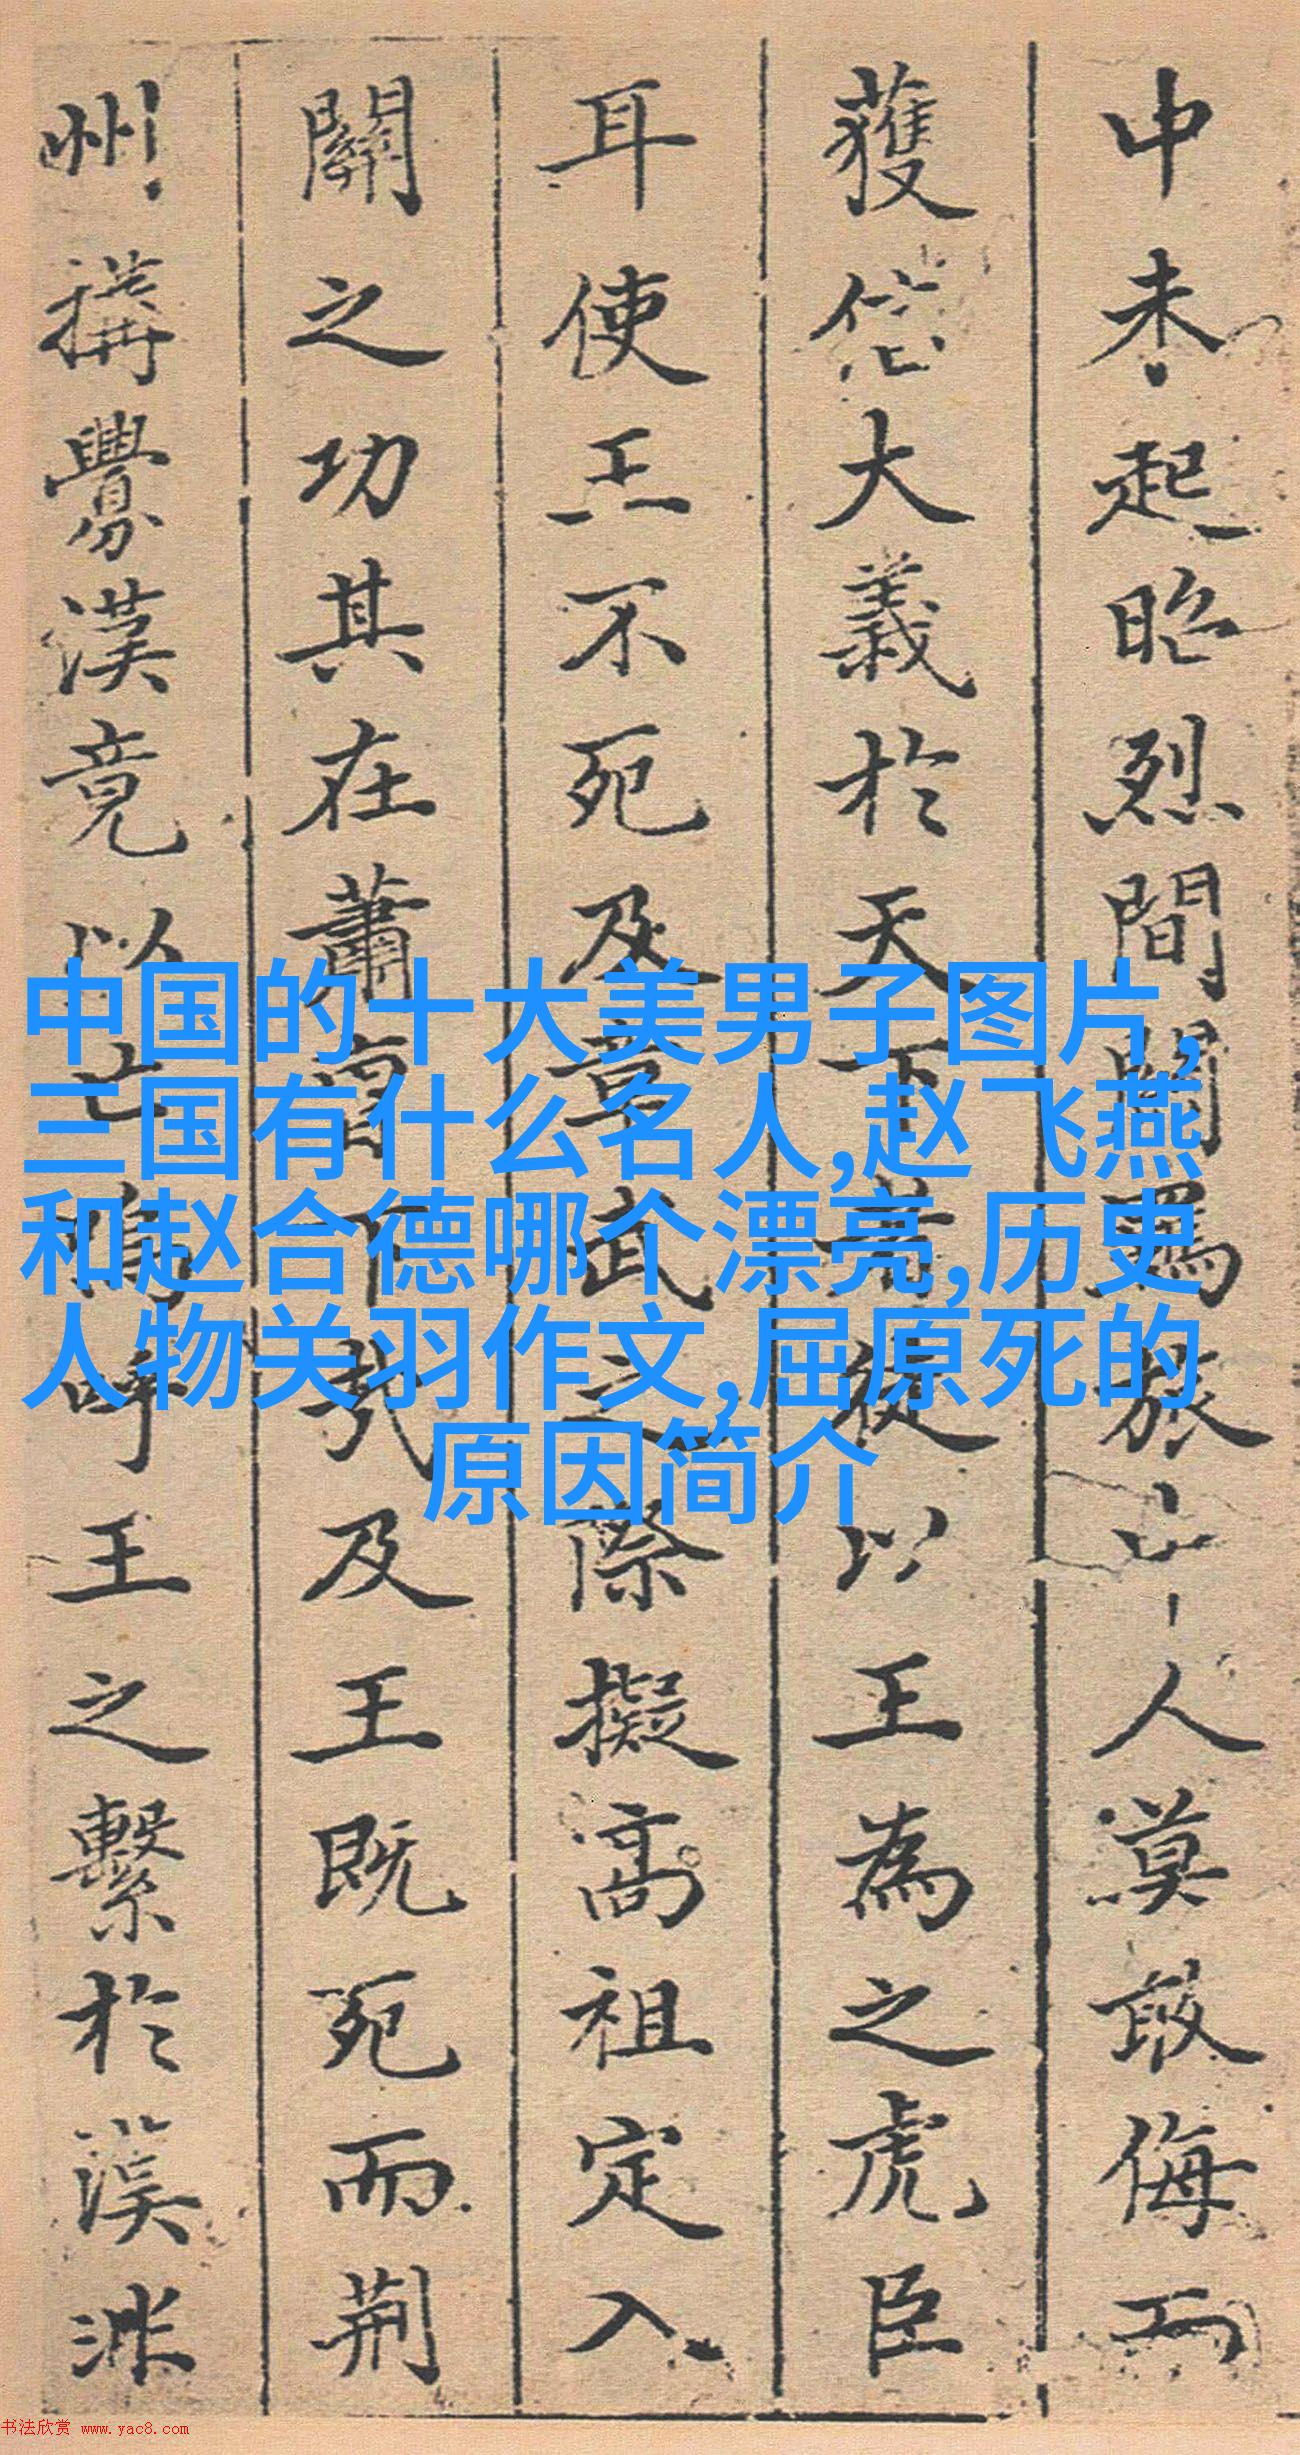 中未起昭烈間關羈旅人漠敢侮而
獲信大義於天下者以王為之虎臣
耳使王不死及章武之際擬高祖定入
關之功其在蕭曹下哉及王既死而荊
州搆釁漢竟以亡嗚呼王之繫於漢
中国的十大美男子图片,
三国有什么名人,赵飞燕
和赵合德哪个漂亮,历史
人物关羽作文,屈原死的
原因简介
书法欣赏 www.yac8.com